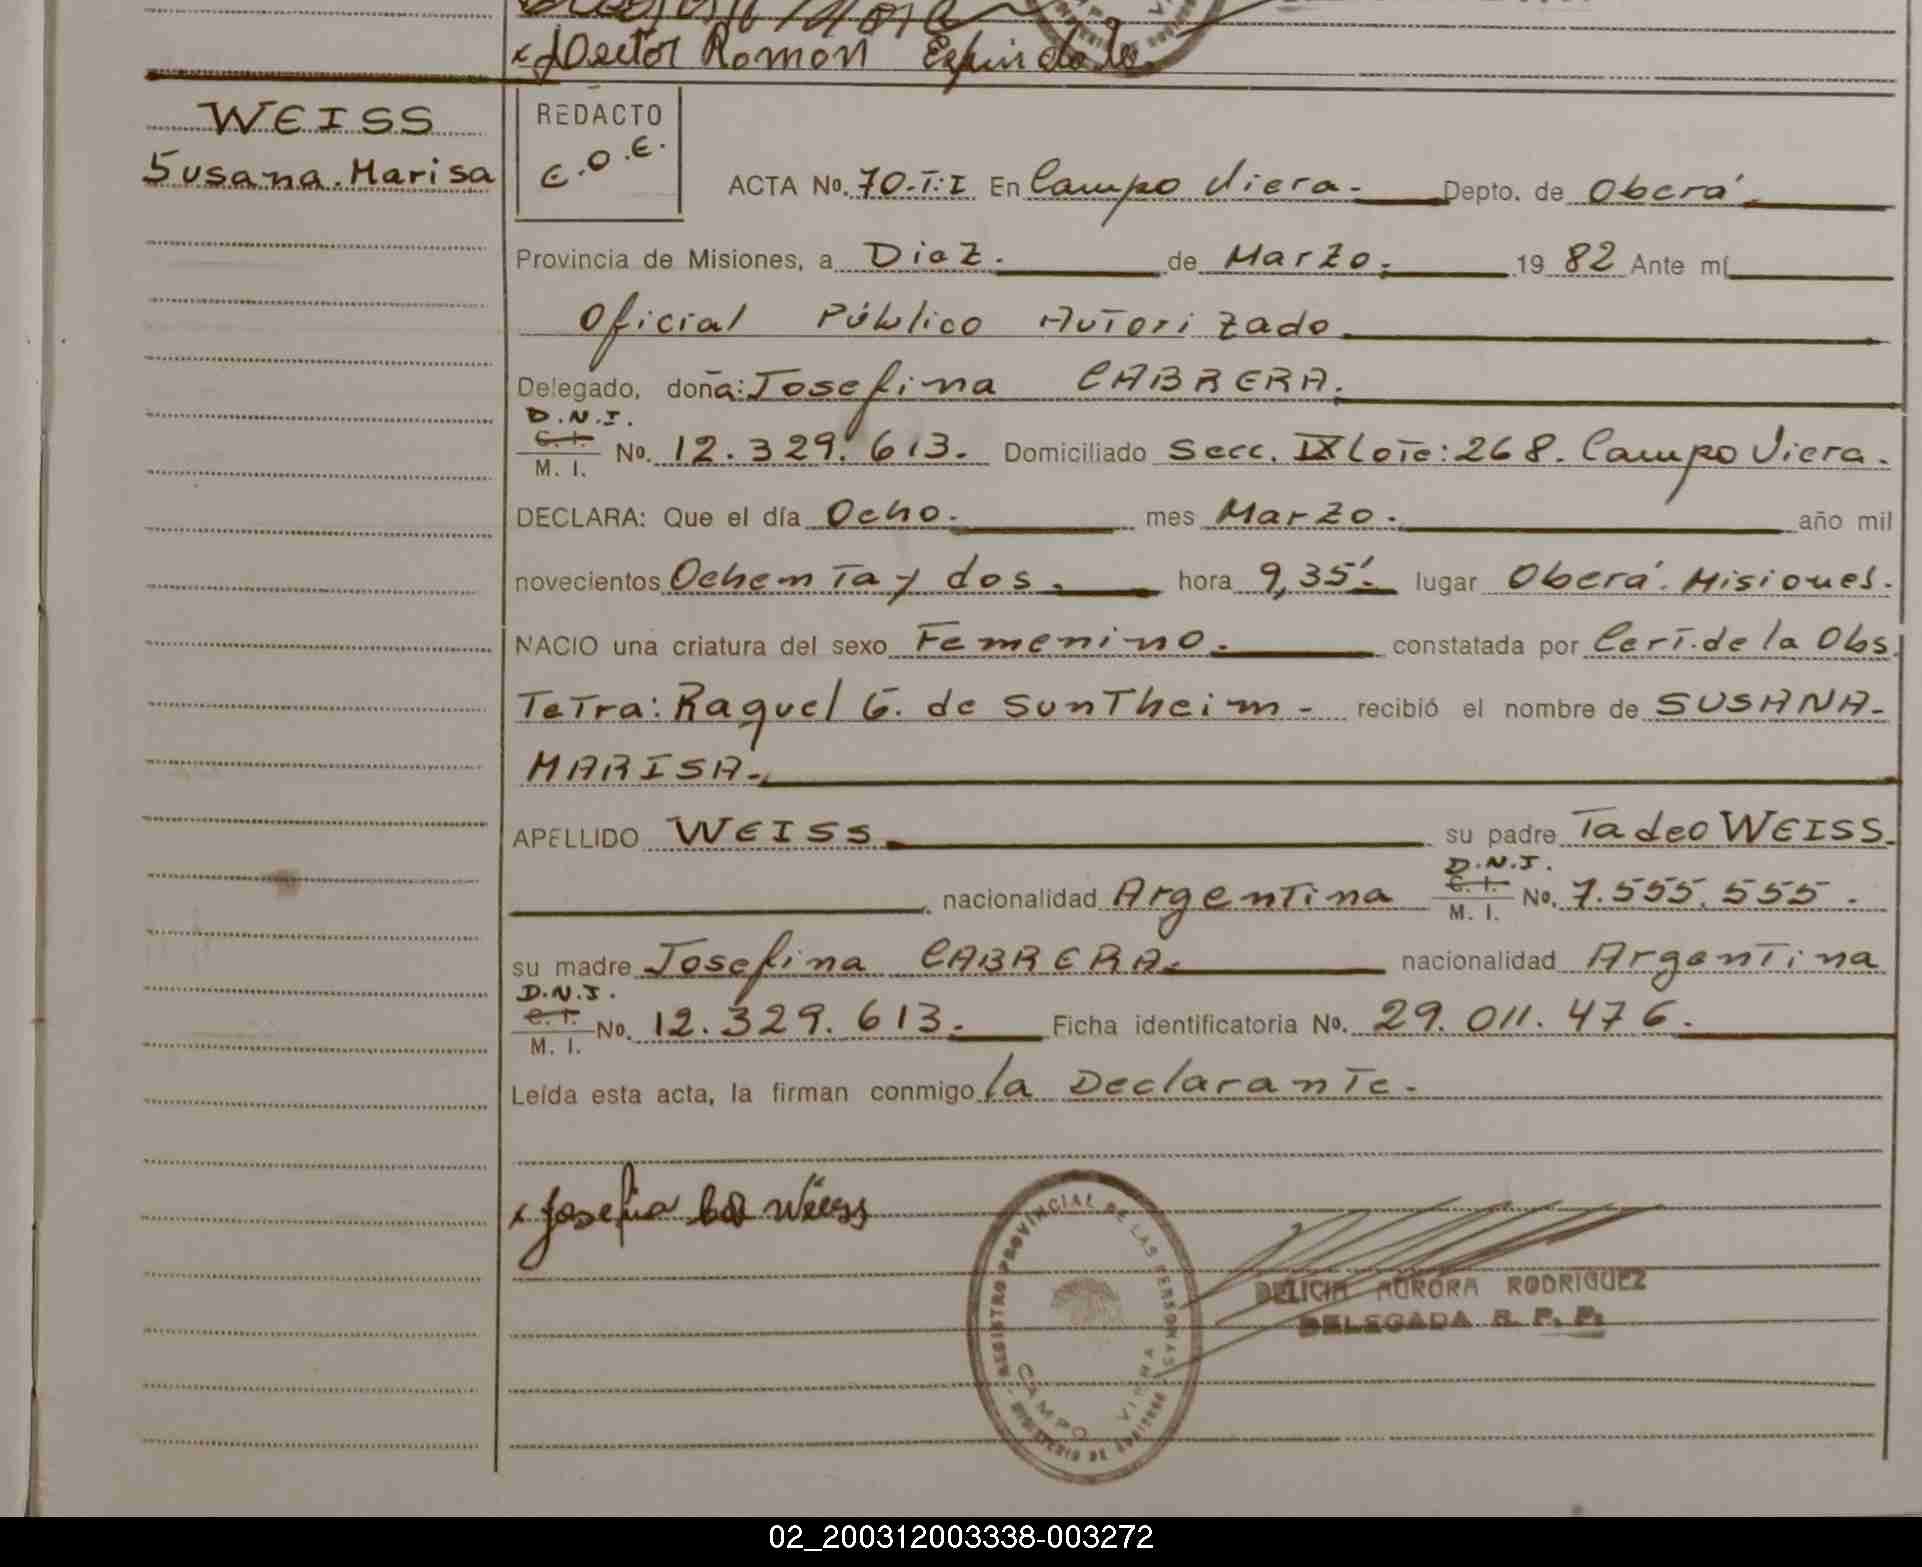 Ramon
WEISS
Susana Marisa
REDACTO
E.O.E.
ACTA No. 70-T:I En Campo Viera.- Depto. de Oberá
Provincia de Misiones, a Diez. de Marzo. 19 82 Ante mí
Oficial Público Autorizado
Delegado, doña: Josefina CABRERA.
D.N.I.
C. I.
M. I.
No. 12.329.613. Domiciliado Secc. IX Lote: 268. Campo Viera.
DECLARA: Que el día Ocho. mes Marzo. año mil
novecientos Ochenta y dos. hora 9,35'. lugar Oberá. Misiones.
NACIO una criatura del sexo Femenino. constatada por Cert. de la Obs.
Tetra: Raquel G. de Suntheim - recibió el nombre de SUSANA-
MARISA.
APELLIDO WEISS su padre Tadeo WEISS.
nacionalidad Argentina D.N.I. C. I. M. I. No. 7.555.555.
su madre Josefina CABRERA. nacionalidad Argentina
D.N.I.
C. I.
M. I.
No. 12.329.613. Ficha identificatoria No. 29.011.476.
Leída esta acta, la firman conmigo la Declarante.
Weiss
REGISTRO PROVINCIAL DE LAS PERSONAS
CAMPO VIERA
MINISTERIO DE GOBIERNO
DELICIA AURORA RODRIGUEZ
DELEGADA R. P. P.
02_200312003338-003272